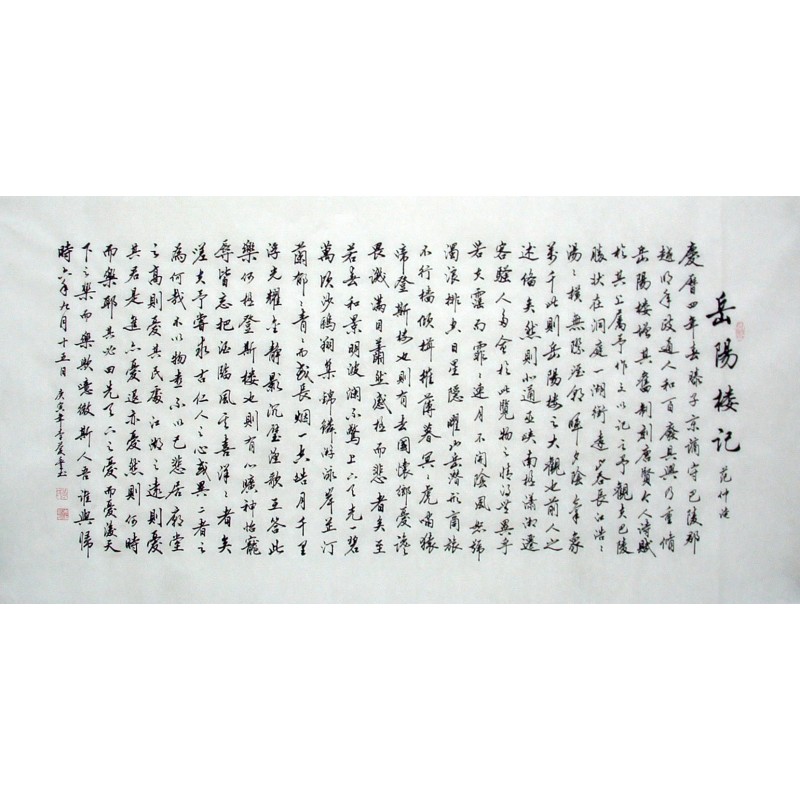 岳陽樓記
范仲淹
慶曆四年春滕子京謫守巴陵郡
越明年政通人和百廢具興乃重修
岳陽樓增其舊制刻唐賢今人詩賦
於其上屬予作文以記之予觀夫巴陵
勝狀在洞庭一湖銜遠山吞長江浩〻
湯〻橫無際涯朝暉夕陰氣象
萬千此則岳陽樓之大觀也前人之
述備矣然則北通巫峽南極瀟湘遷
客騷人多會於此覽物之情得無異乎
若夫霪雨霏〻連月不開陰風怒號
濁浪排空日星隱曜山岳潛形商旅
不行檣傾楫摧薄暮冥〻虎嘯猿
啼登斯樓也則有去國懷鄉憂讒
畏譏滿目蕭然感極而悲者矣至
若春和景明波瀾不驚上下天光一碧
萬頃沙鷗翔集錦鱗游泳岸芷汀
蘭郁〻青〻而或長烟一空皓月千里
浮光耀金靜影沉璧漁歌互答此
樂何極登斯樓也則有心曠神怡寵
辱皆忘把酒臨風其喜洋〻者矣
嗟夫予嘗求古仁人之心或異二者之
為何哉不以物喜不以己悲居廟堂
之高則憂其民處江湖之遠則憂
其君是進亦憂退亦憂然則何時
而樂耶其必曰先天下之憂而憂後天
下之樂而樂歟噫微斯人吾誰與歸
時六年九月十五日